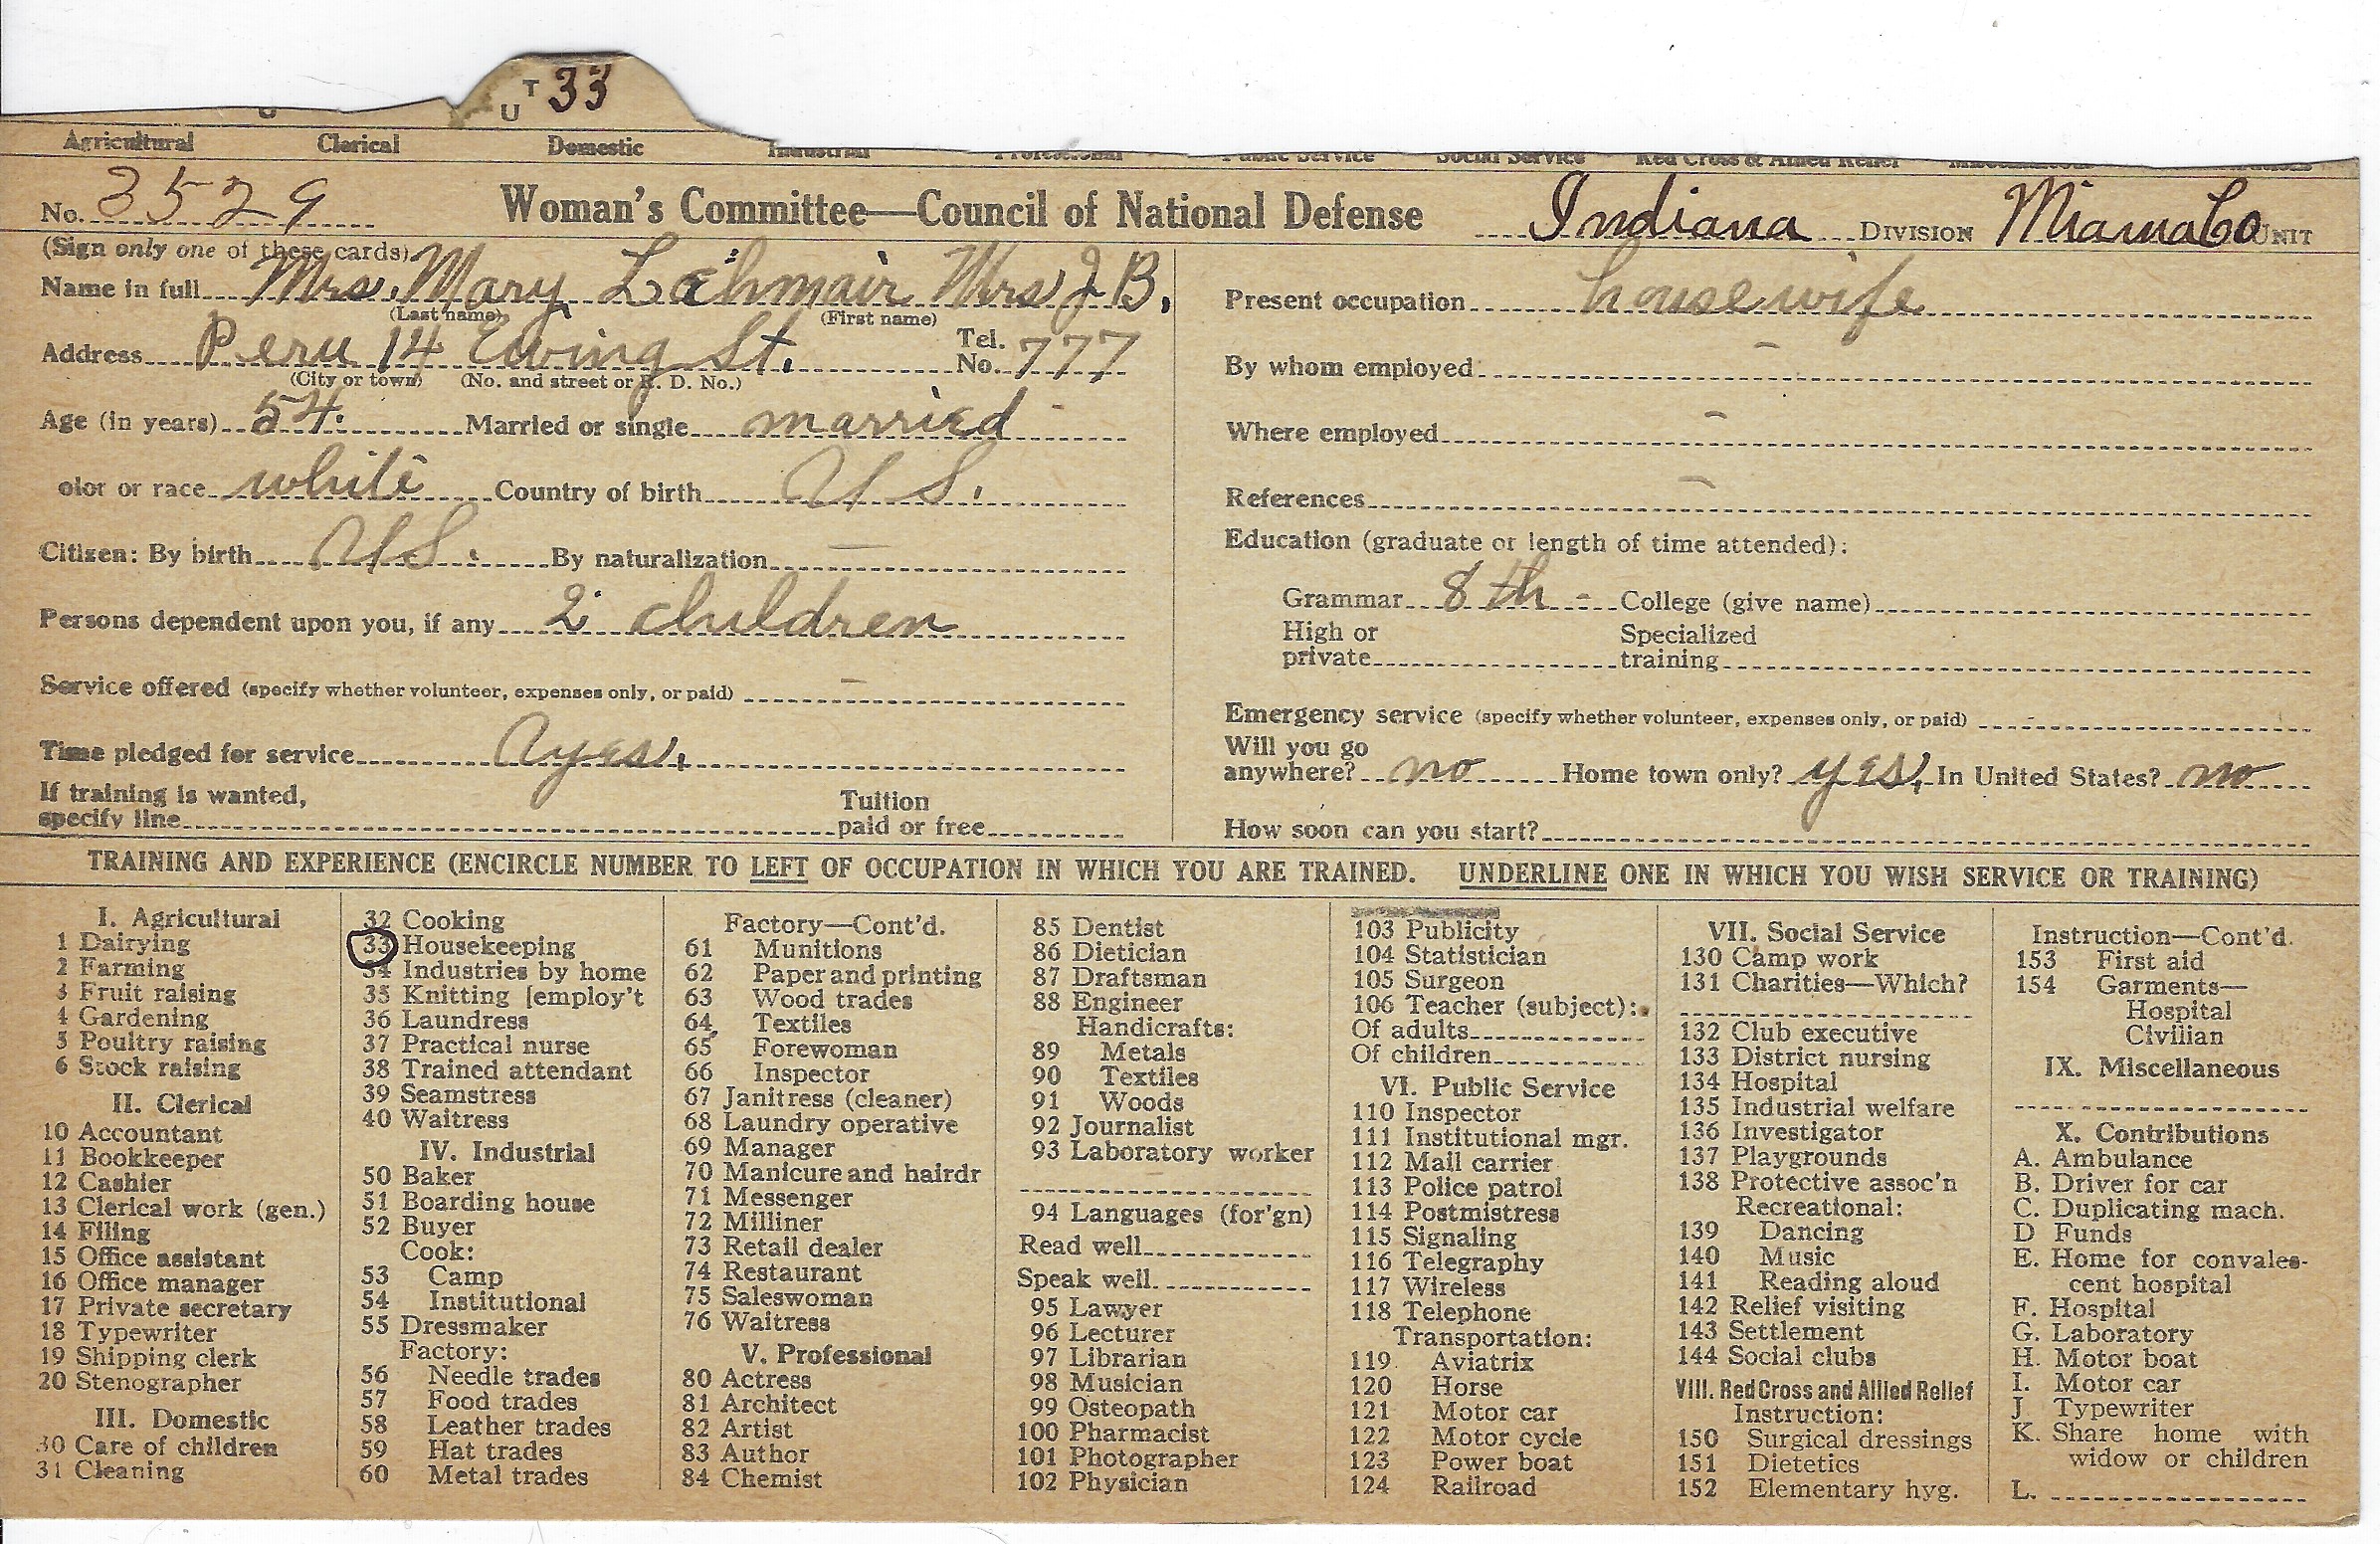 U T 33
Agricultural Clerical Domestic Industrial Professional Public Service Social Service Red Cross & Allied Relief
No. 3529 Woman's Committee—Council of National Defense Indiana DIVISION Miami Co UNIT
(Sign only one of these cards)
Name in full Mrs. Mary Lahmair Mrs J B.
(Last name) (First name)
Address Peru 14 Ewing St. Tel. No. 777
(City or town) (No. and street or R. D. No.)
Age (in years) 54. Married or single married
olor or race white Country of birth U S.
Citizen: By birth U S. By naturalization —
Persons dependent upon you, if any 2 children
Service offered (specify whether volunteer, expenses only, or paid) —
Time pledged for service yes.
If training is wanted,
specify line Tuition paid or free
Present occupation housewife
By whom employed -
Where employed -
References -
Education (graduate or length of time attended):
Grammar 8th - College (give name)
High or private Specialized training
Emergency service (specify whether volunteer, expenses only, or paid)
Will you go
anywhere? no Home town only? yes, In United States? no
How soon can you start?
TRAINING AND EXPERIENCE (ENCIRCLE NUMBER TO LEFT OF OCCUPATION IN WHICH YOU ARE TRAINED. UNDERLINE ONE IN WHICH YOU WISH SERVICE OR TRAINING)
I. Agricultural
1 Dairying
2 Farming
3 Fruit raising
4 Gardening
5 Poultry raising
6 Stock raising
II. Clerical
10 Accountant
11 Bookkeeper
12 Cashier
13 Clerical work (gen.)
14 Filing
15 Office assistant
16 Office manager
17 Private secretary
18 Typewriter
19 Shipping clerk
20 Stenographer
III. Domestic
30 Care of children
31 Cleaning
32 Cooking
33 Housekeeping
34 Industries by home
35 Knitting [employ't
36 Laundress
37 Practical nurse
38 Trained attendant
39 Seamstress
40 Waitress
IV. Industrial
50 Baker
51 Boarding house
52 Buyer
Cook:
53 Camp
54 Institutional
55 Dressmaker
Factory:
56 Needle trades
57 Food trades
58 Leather trades
59 Hat trades
60 Metal trades
Factory—Cont'd.
61 Munitions
62 Paper and printing
63 Wood trades
64 Textiles
65 Forewoman
66 Inspector
67 Janitress (cleaner)
68 Laundry operative
69 Manager
70 Manicure and hairdr
71 Messenger
72 Milliner
73 Retail dealer
74 Restaurant
75 Saleswoman
76 Waitress
V. Professional
80 Actress
81 Architect
82 Artist
83 Author
84 Chemist
85 Dentist
86 Dietician
87 Draftsman
88 Engineer
Handicrafts:
89 Metals
90 Textiles
91 Woods
92 Journalist
93 Laboratory worker
94 Languages (for'gn)
Read well
Speak well
95 Lawyer
96 Lecturer
97 Librarian
98 Musician
99 Osteopath
100 Pharmacist
101 Photographer
102 Physician
103 Publicity
104 Statistician
105 Surgeon
106 Teacher (subject):
Of adults
Of children
VI. Public Service
110 Inspector
111 Institutional mgr.
112 Mail carrier
113 Police patrol
114 Postmistress
115 Signaling
116 Telegraphy
117 Wireless
118 Telephone
Transportation:
119 Aviatrix
120 Horse
121 Motor car
122 Motor cycle
123 Power boat
124 Railroad
VII. Social Service
130 Camp work
131 Charities—Which?
132 Club executive
133 District nursing
134 Hospital
135 Industrial welfare
136 Investigator
137 Playgrounds
138 Protective assoc'n
Recreational:
139 Dancing
140 Music
141 Reading aloud
142 Relief visiting
143 Settlement
144 Social clubs
VIII. Red Cross and Allied Relief
Instruction:
150 Surgical dressings
151 Dietetics
152 Elementary hyg.
Instruction—Cont'd.
153 First aid
154 Garments—
Hospital
Civilian
IX. Miscellaneous
X. Contributions
A. Ambulance
B. Driver for car
C. Duplicating mach.
D Funds
E. Home for convales-
cent hospital
F. Hospital
G. Laboratory
H. Motor boat
I. Motor car
J Typewriter
K. Share home with
widow or children
L.